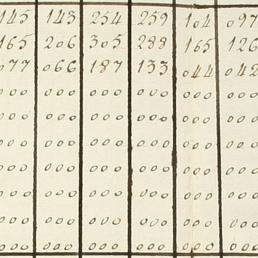 145 143 254 259 104 097
165 206 305 288 165 126
077 066 187 133 044 042
000 000 000 000 000 000
000 000 000 000 000 000
000 000 000 000 000 000
000 000 000 000 000 000
000 000 000 000 000 000
000 000 000 000 000 000
000 000 000 000 000 000